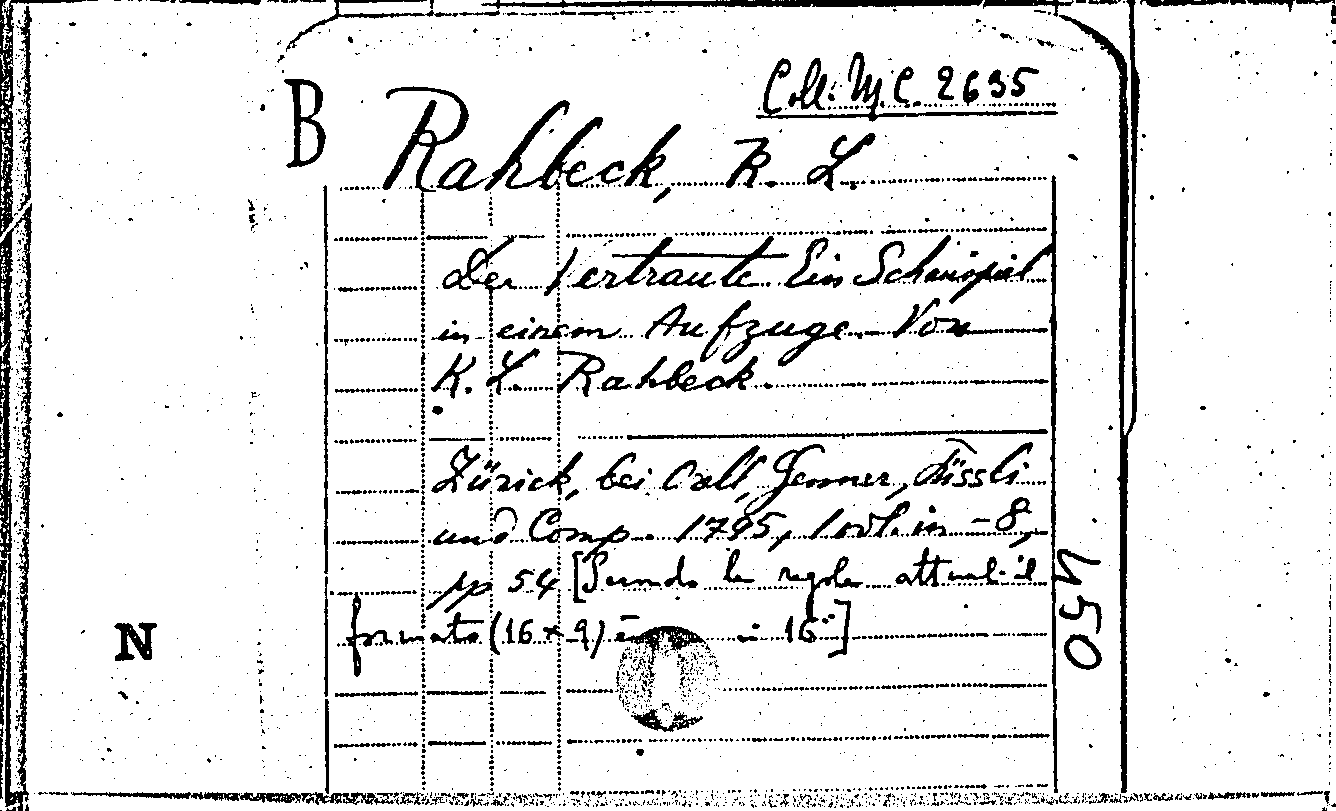 Coll. M.C. 2635
B
Rahbeck, K. L.
Der Vertraute Ein Schauspiel
in einem Aufzuge. Von
K. L. Rahbeck.
Zürich, bei Orell, Gessner, Füssli
und Comp. 1795, 1 vol. in -8,
pp 54 [Secondo le regole attuali il
formato (16 x 9) è in 16°]
N
N50